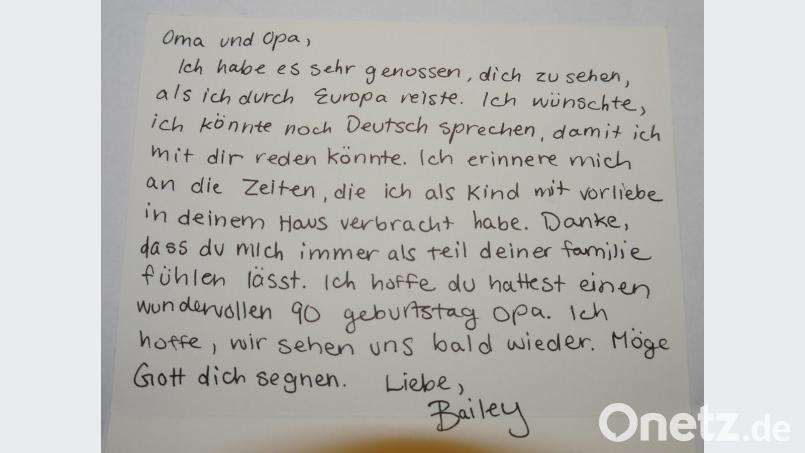 Oma und Opa,
Ich habe es sehr genossen, dich zu sehen,
als ich durch Europa reiste. Ich wünschte,
ich könnte noch Deutsch sprechen, damit ich
mit dir reden könnte. Ich erinnere mich
an die Zeiten, die ich als Kind mit vorliebe
in deinem Haus verbracht habe. Danke,
dass du mich immer als teil deiner familie
fühlen lässt. Ich hoffe du hattest einen
wundervollen 90 geburtstag Opa. Ich
hoffe, wir sehen uns bald wieder. Möge
Gott dich segnen. Liebe,
Bailey
Onetz.de